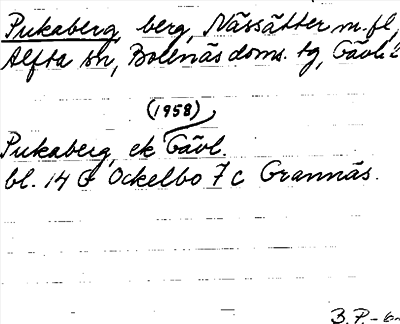 Pukaberg, berg, Nässätter m.fl,
Alfta sn, Bollnäs doms. tg, Gävl.
(1958)
Pukaberg, ek Gävl.
bl. 14 G Ockelbo 7c Grannäs.
B.P.-